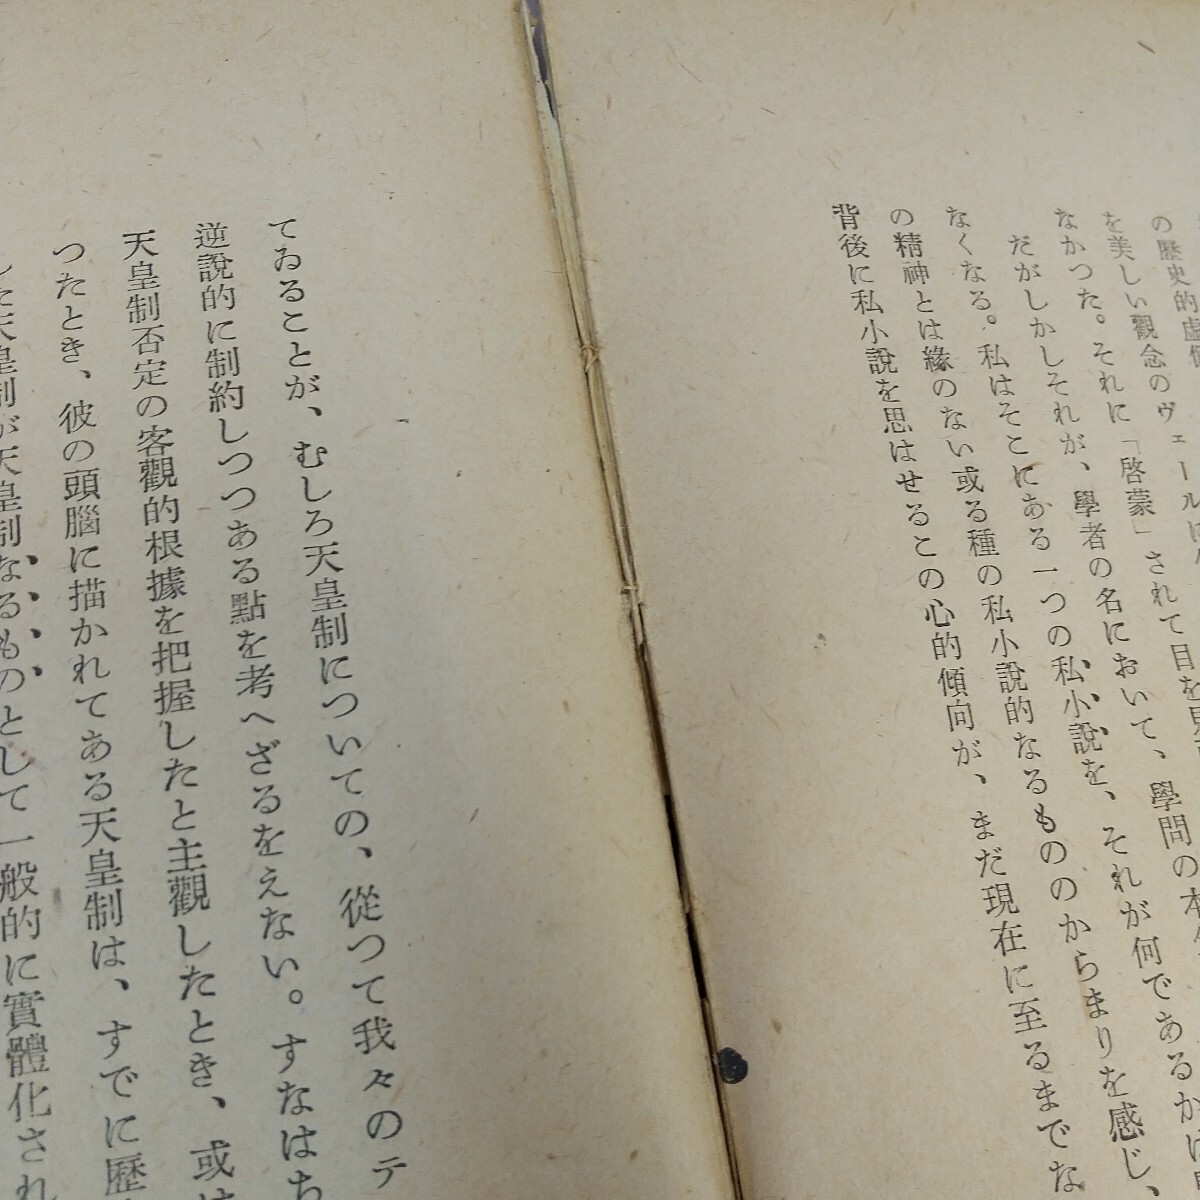 の歷史的虛
を美しい觀念のヴェールに
なかつた。それに「啓蒙」されて目を
だがしかしそれが、學者の名において、學問の本
なくなる。私はそこにある一つの私小說を、それが何であるかは
の精神とは緣のない或る種の私小說的なるもののからまりを感じ、
背後に私小說を思はせるこの心的傾向が、まだ現在に至るまでな
てゐることが、むしろ天皇制についての、從つて我々のテ
逆說的に制約しつつある點を考へざるをえない。すなはち
天皇制否定の客觀的根據を把握したと主觀したとき、或は
つたとき、彼の頭腦に描かれてある天皇制は、すでに歷
した天皇制が天皇制なるものとして一般的に實體化され